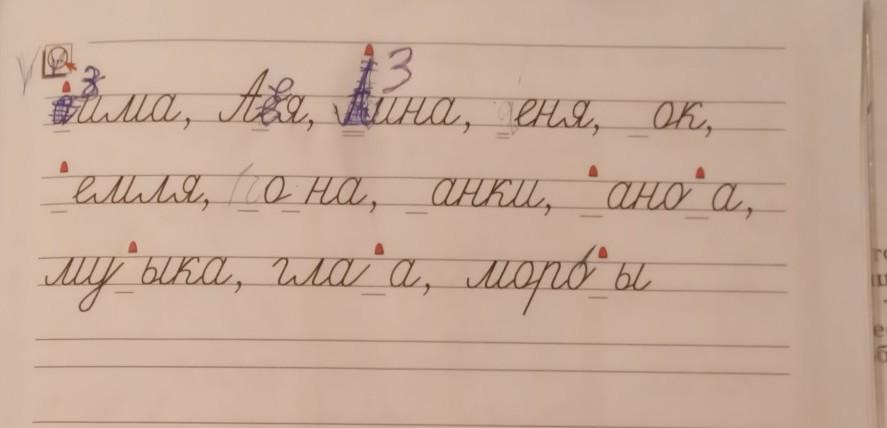 зима, Ася, Зина, _еня, _ок,
_емля, _о_на, _анки, _ано_а,
му_ыка, гла_а, моро_ы